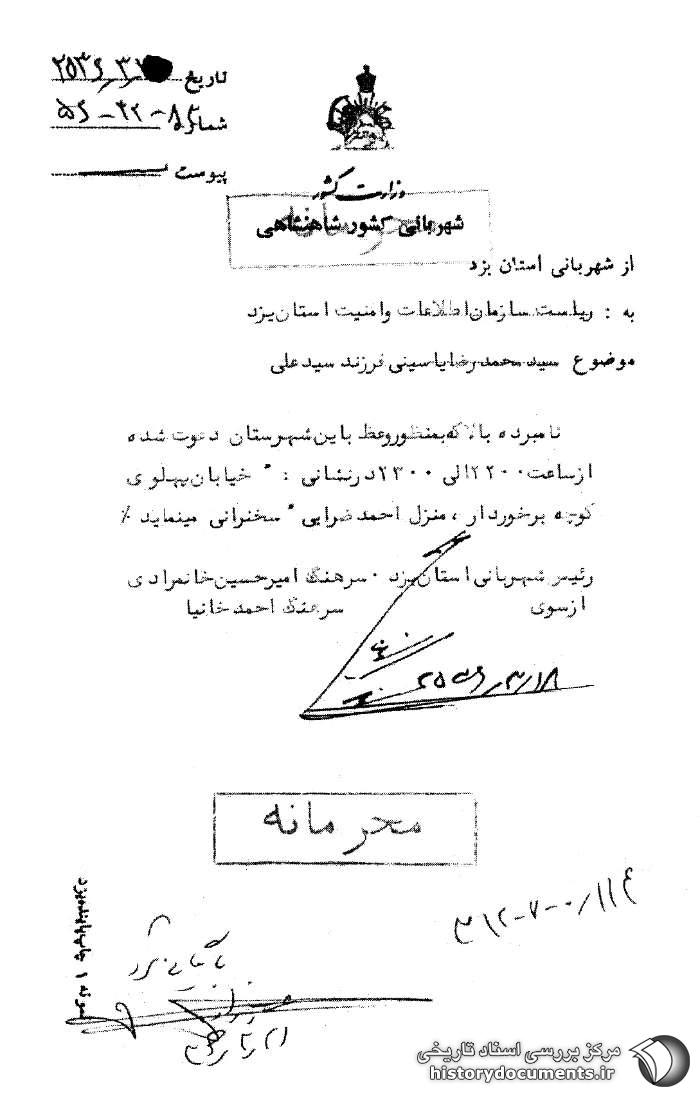 تاریخ ۲۵۳۶٫۳٫
شماره ۸۲-۴۲-۵۶
پیوست
وزارت کشور
شهربانی کشور شاهنشاهی
از شهربانی استان یزد
به : ریاست سازمان اطلاعات وامنیت استان یزد
موضوع سید محمد رضا یاسینی فرزند سید علی
نامبرده بالا که بمنظور وعظ باین شهرستان دعوت شده
از ساعت ۲۲۰۰ الی ۲۳۰۰ در نشانی : " خیابان پهلوی
کوچه برخوردار ، منزل احمد ضرابی " سخنرانی مینماید ٪
رئیس شهربانی استان یزد ۰ سرهنگ امیرحسین خانمرادی
از سوی سرهنگ احمد خانیا
۲۵۳۶٫۳٫۱۸
محرمانه
مرکز بررسی اسناد تاریخی
historydocuments.ir